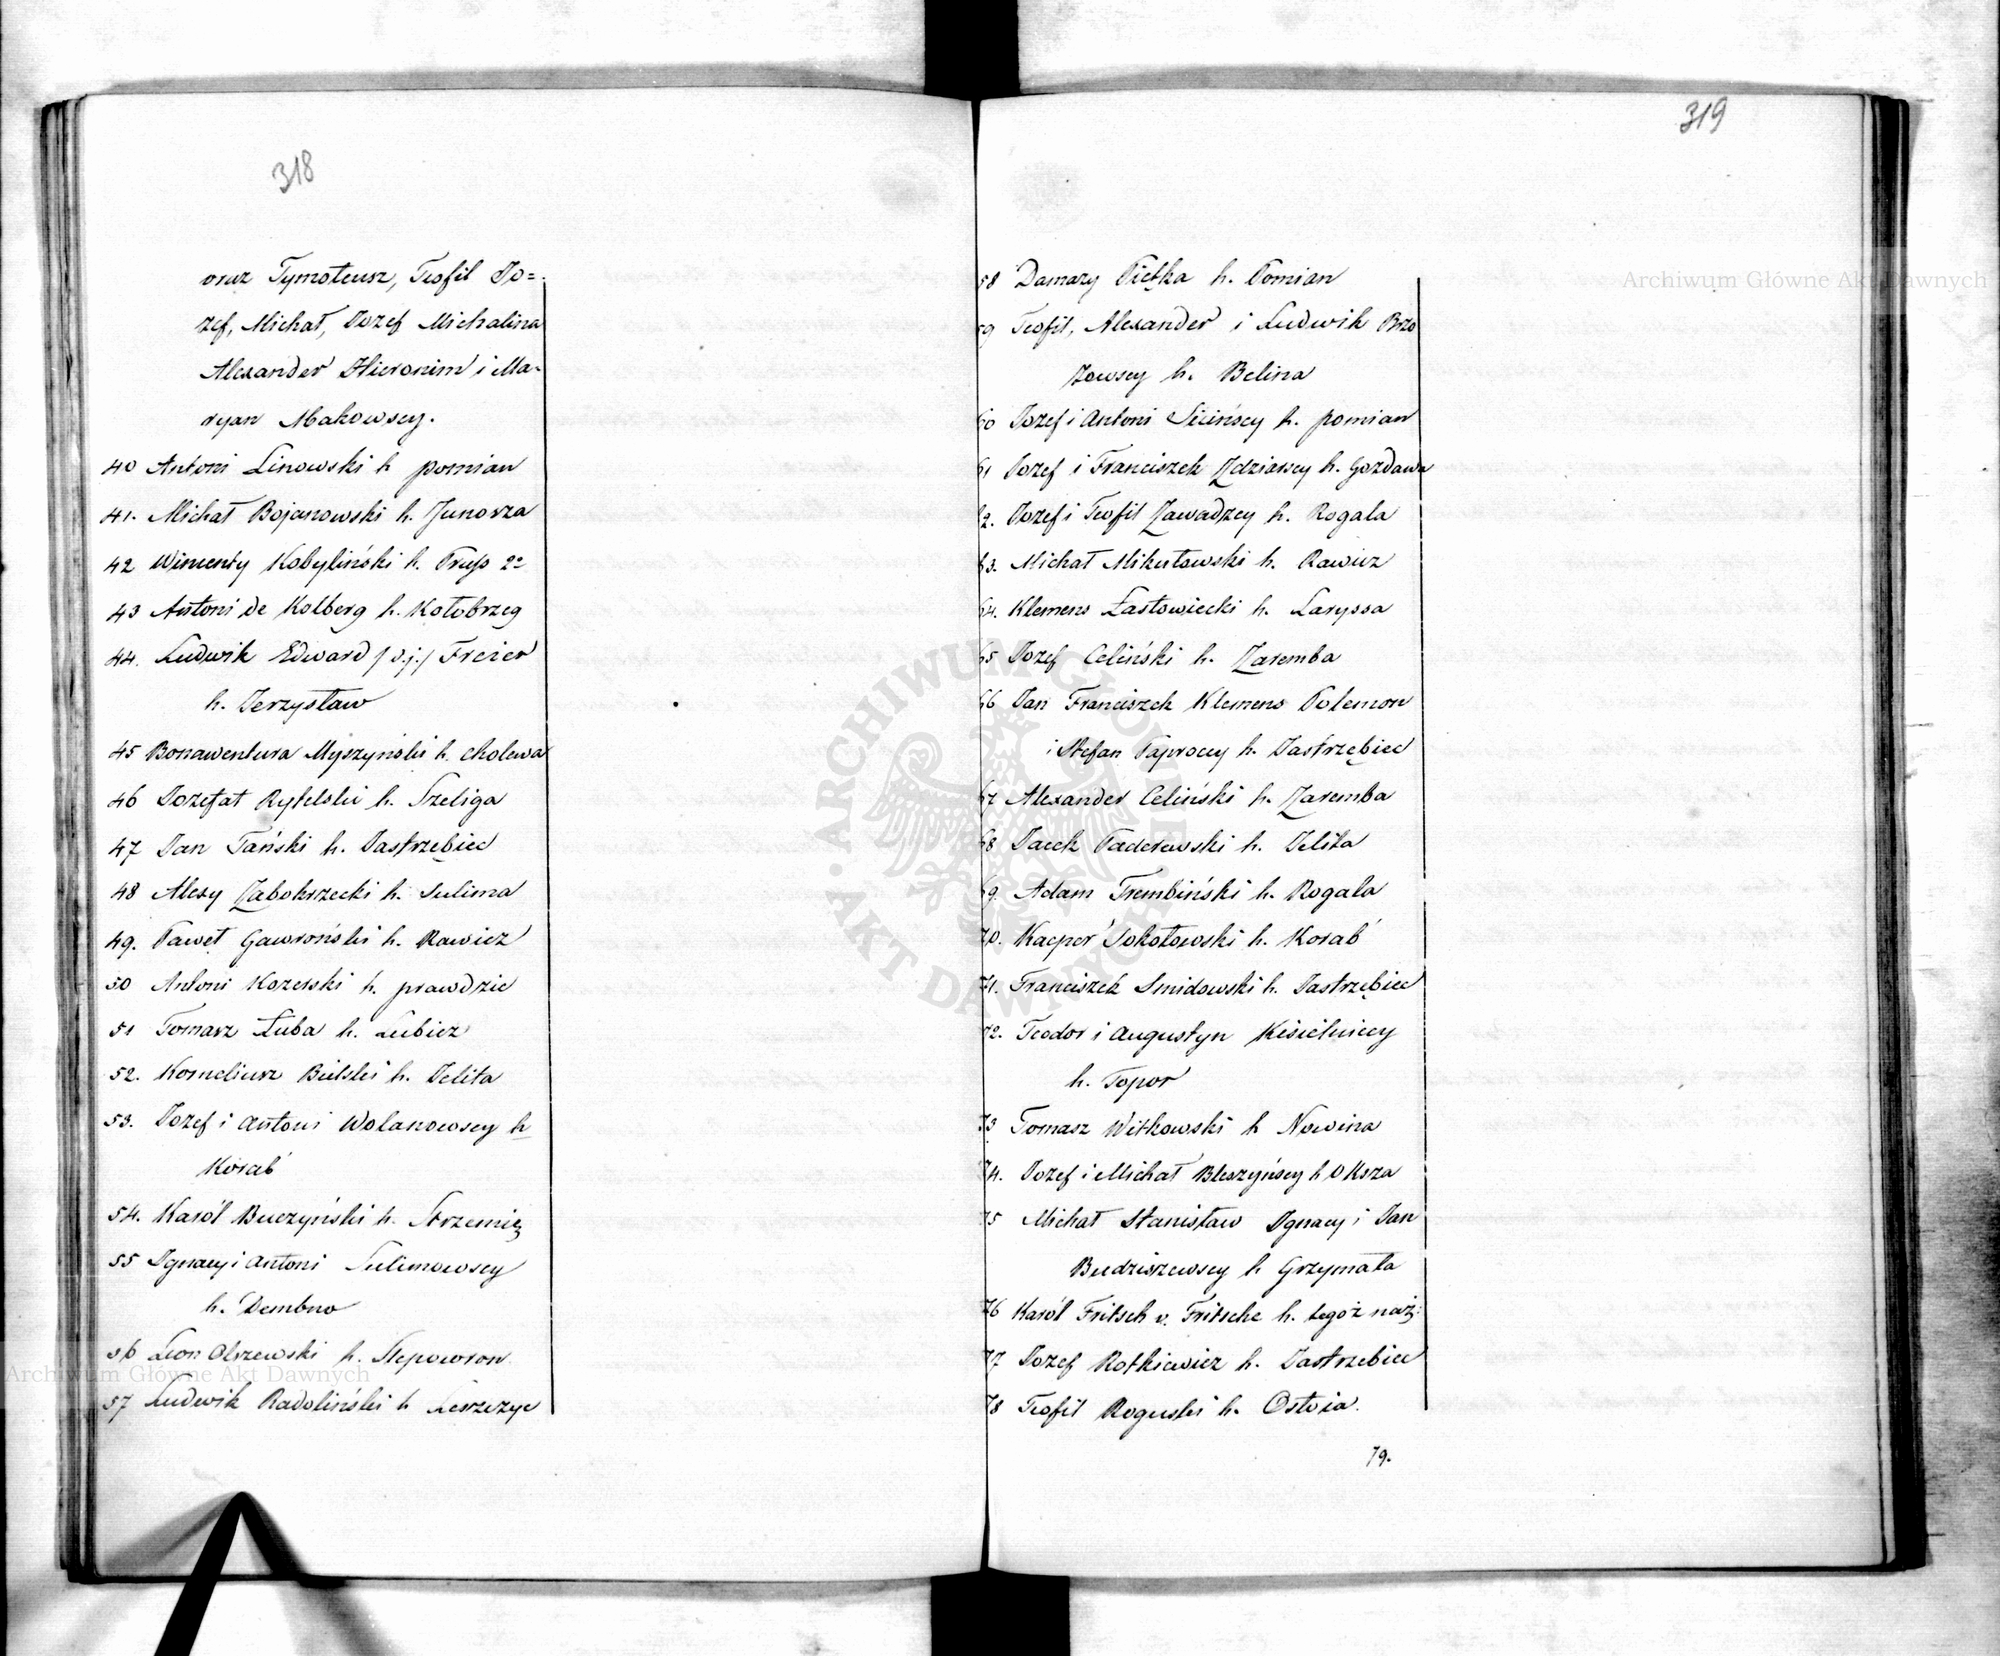 318
oraz Tymoteusz, Teofil Jo=
zef, Michał, Jozef Michalina
Alexander Hieronim i Ma-
ryan Makowscy.
40 Antoni Linowski h pomian
41. Michał Bojanowski h. Junosza
42 Wincenty Kobyliński h. Pruss 2º
43 Antoni de Kolberg h. Kołobrzeg
44. Ludwik Edward /s.j./ Freier
h. Jerzysław
45 Bonawentura Myszyński h. cholewa
46 Jozefat Rytelski h. Szeliga
47 Jan Tański h. Jastrzębiec
48 Alexy Zabokrzecki h. Sulima
49. Paweł Gawroński h. Rawicz
50 Antoni Kozerski h. prawdzic
51 Tomasz Łuba h. Lubicz
52. Korneliusz Bielski h. Jelita
53. Jozef i Antoni Wolanowscy h
Korab
54. Karól Buczyński h. Strzemię
55 Ignacy i Antoni Sulimowscy
h. Dembno
56 Leon Olszewski h. Slepowron
57 Ludwik Radoliński h Leszczyc
319
58 Damazy Piętka h. Pomian
59 Teofil, Alexander i Ludwik Brzo
zowscy h. Belina
60 Jozef i Antoni Sicińscy h. pomian
61 Jozef i Franciszek Zdziarscy h. Gozdawa
62. Jozef i Teofil Zawadzcy h. Rogala
63. Michał Mikułowski h. Rawicz
64. Klemens Łastowiecki h. Laryssa
65 Jozef Celiński h. Zaremba
66 Jan Franciszek Klemens Polemon
i Stefan Paproccy h. Jastrzębiec
67 Alexander Celiński h. Zaremba
68 Jacek Paderewski h. Jelita
69. Adam Trembiński h. Rogala
70. Kacper Sokołowski h. Korab
71. Franciszek Smidowski h. Jastrzębiec
72. Teodor i Augustyn Kisielniccy
h. Topor
73 Tomasz Witkowski h Nowina
74. Jozef i Michał Bleszyńscy h Oksza
75 Michał Stanisław Ignacy i Jan
Budziszewscy h Grzymała
76 Karól Fritsch v. Fritsche h. tegoż naz:
77 Jozef Rotkiewicz h. Jastrzebiec
78 Teofil Roguski h. Ostoia.
79.
Archiwum Główne Akt Dawnych
Archiwum Główne Akt Dawnych
ARCHIWUM GŁÓWNE AKT DAWNYCH